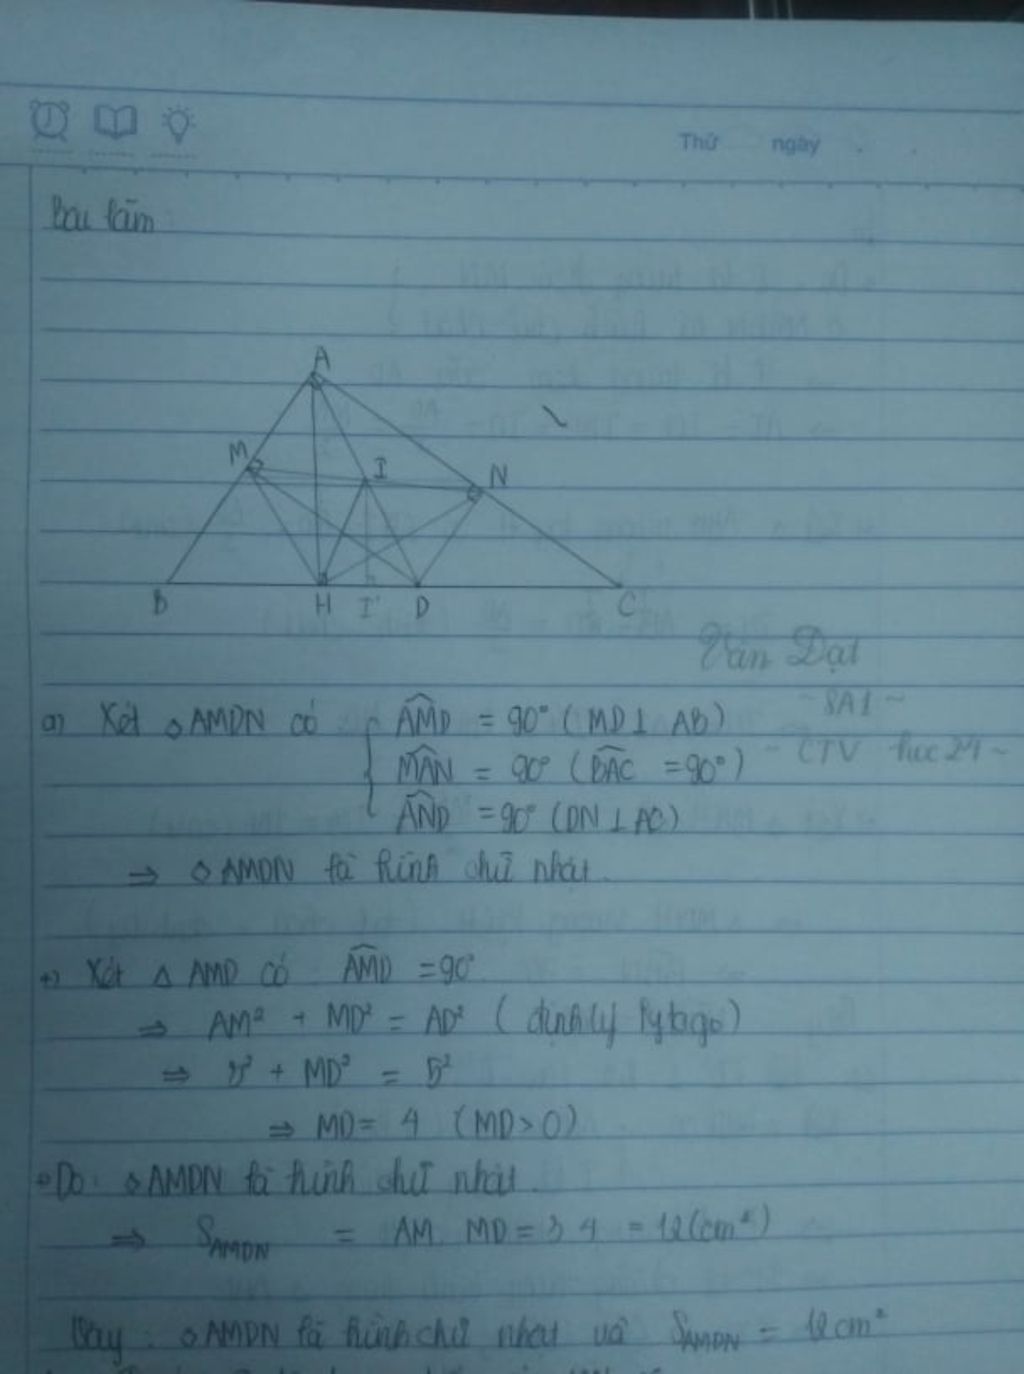 Thứ ngày
Bài làm
A
M I N
B H I' D C
Văn Đạt
~ 8A1 ~
a) Xét ◇AMDN có { AMD = 90° (MD ⊥ AB)
~ CTV hoc24 ~
MAN = 90° (BAC = 90°)
AND = 90° (DN ⊥ AC)
⇒ ◇AMDN là hình chữ nhật.
+) Xét △ AMD có AMD = 90°
⇒ AM² + MD² = AD² (định lý Pytago)
⇒ 3² + MD² = 5²
⇒ MD = 4 (MD > 0)
Do: ◇AMDN là hình chữ nhật.
⇒ S_AMDN = AM. MD = 3.4 = 12 (cm²)
Vậy: ◇AMDN là hình chữ nhật và S_AMDN = 12 cm²